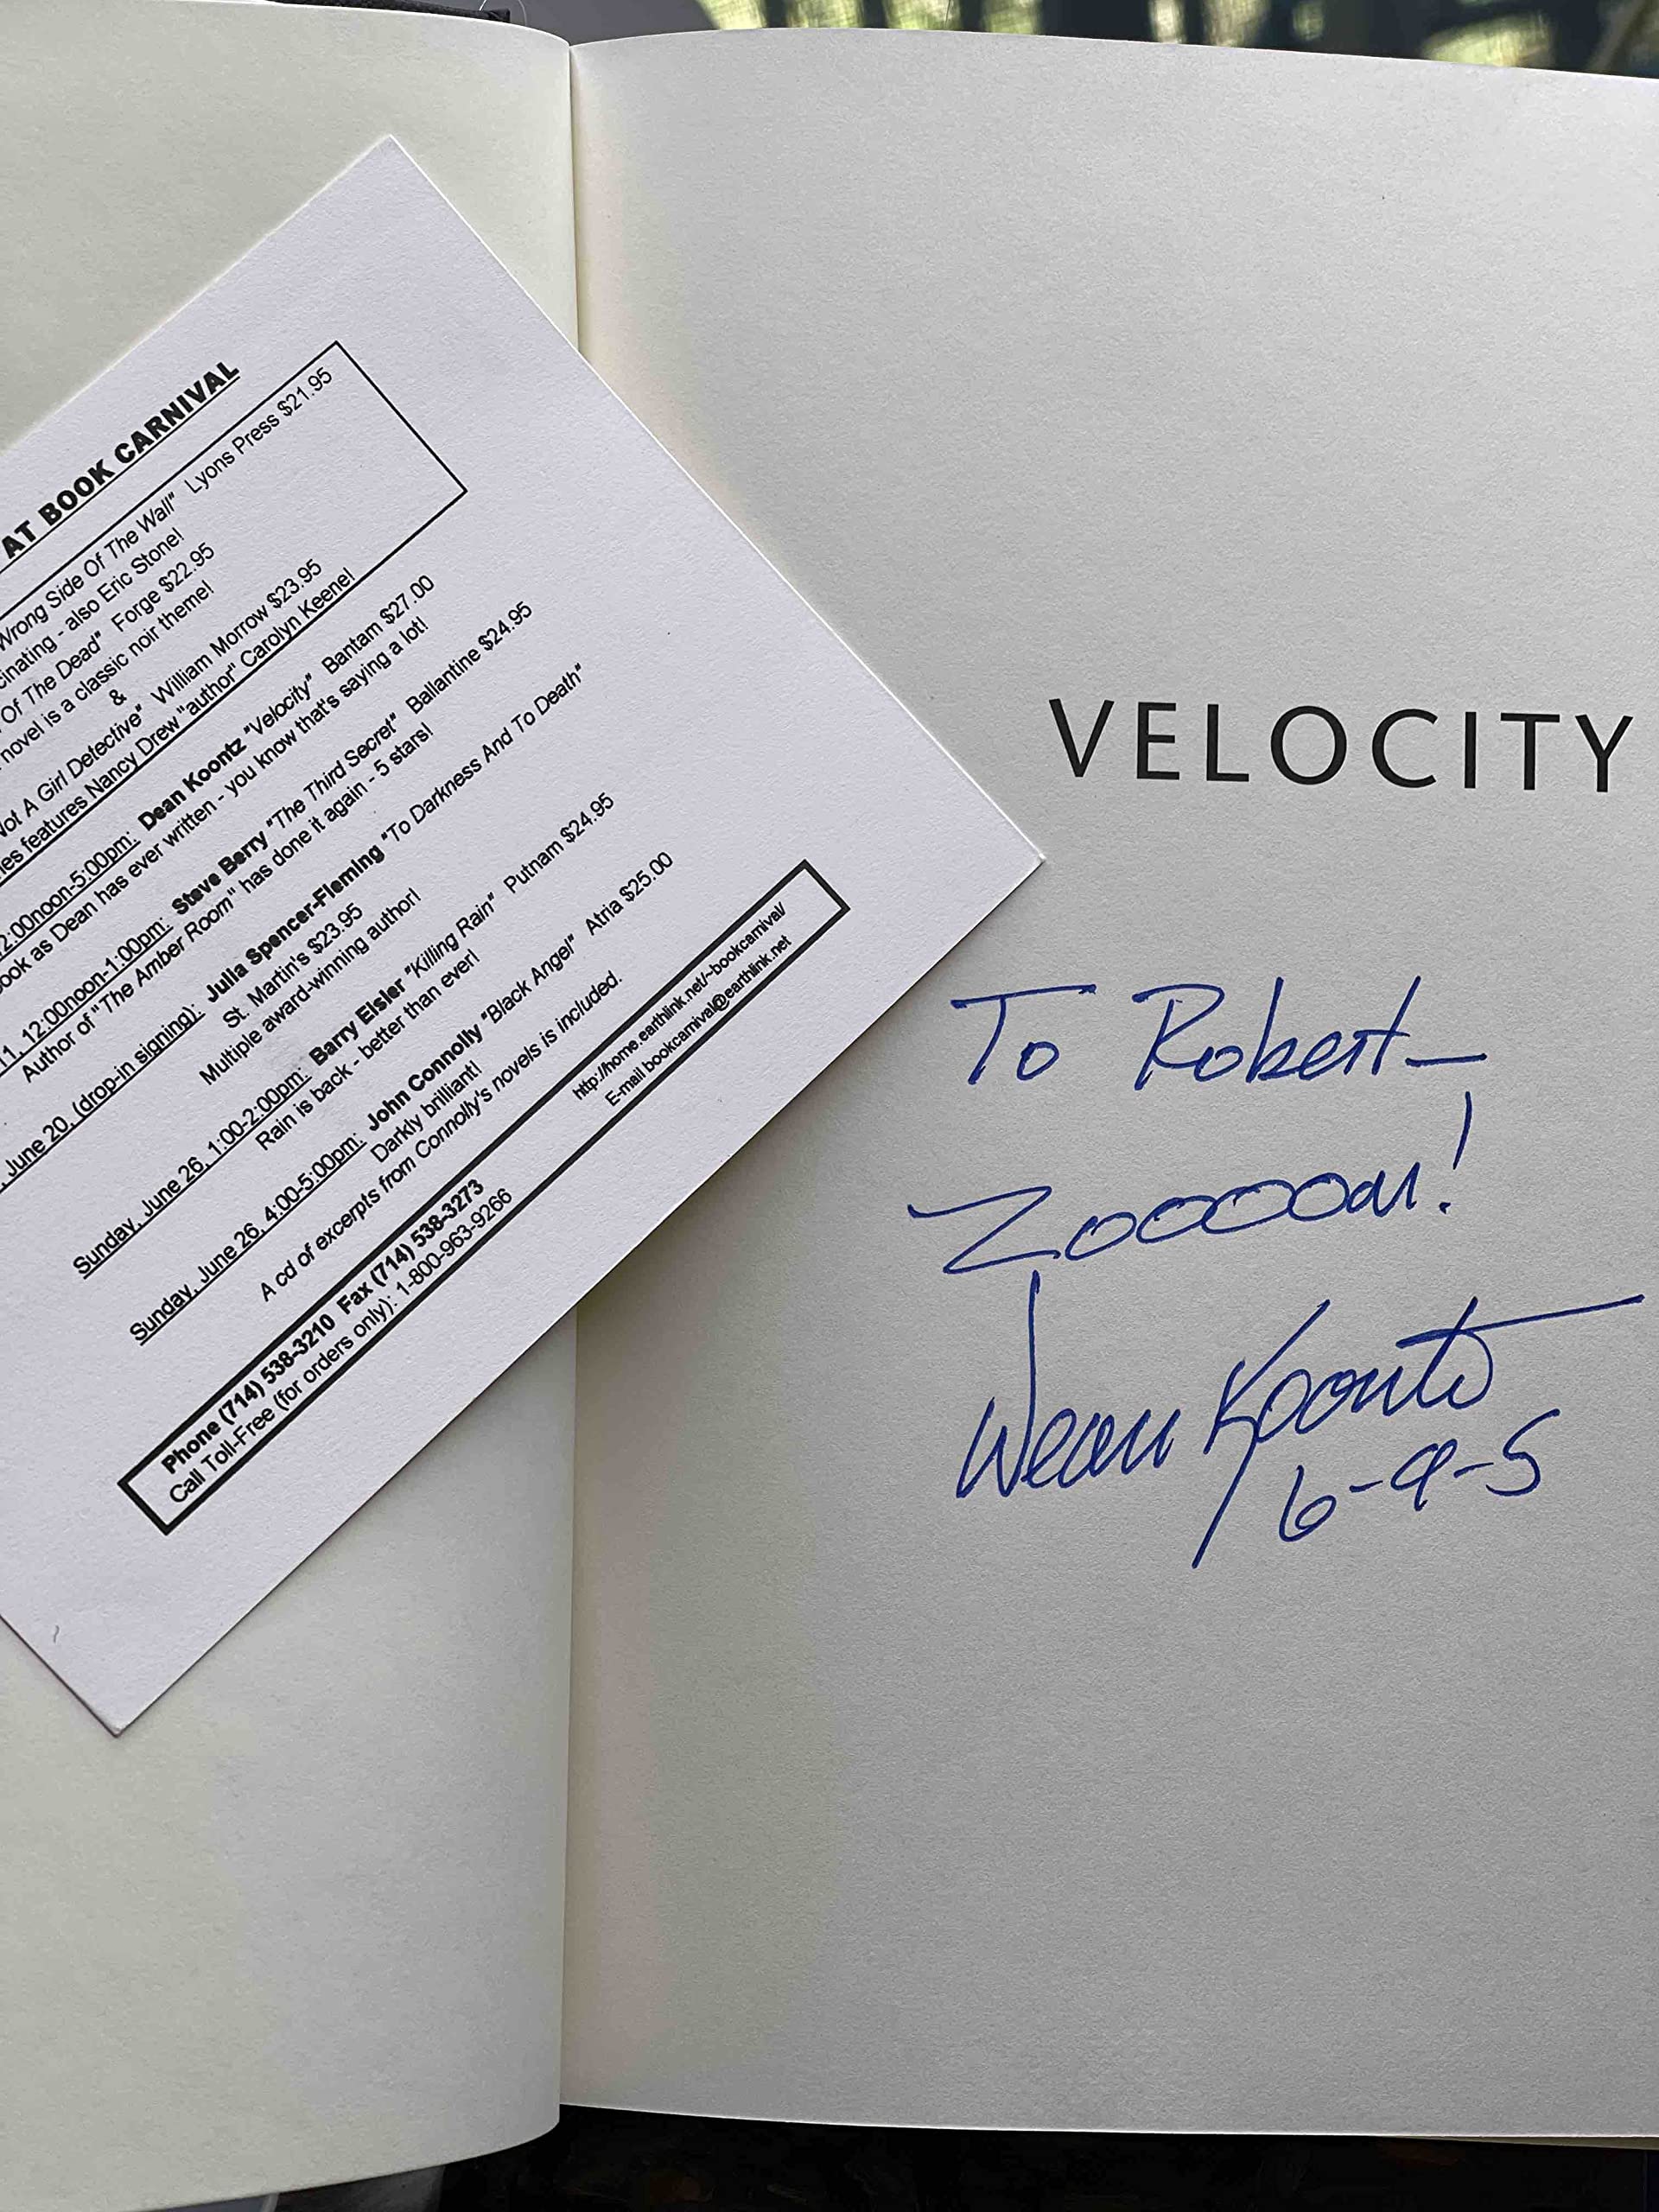 AT BOOK CARNIVAL
Wrong Side Of The Wall" Lyons Press $21.95
cinating - also Eric Stone!
Of The Dead" Forge $22.95
novel is a classic noir theme!
&
Not A Girl Detective" William Morrow $23.95
ies features Nancy Drew "author" Carolyn Keene!
2:00noon-5:00pm: Dean Koontz "Velocity" Bantam $27.00
ook as Dean has ever written - you know that's saying a lot!
11, 12:00noon-1:00pm: Steve Berry "The Third Secret" Ballantine $24.95
Author of "The Amber Room" has done it again - 5 stars!
June 20, (drop-in signing): Julia Spencer-Fleming "To Darkness And To Death"
St. Martin's $23.95
Multiple award-winning author!
Sunday, June 26, 1:00-2:00pm: Barry Eisler "Killing Rain" Putnam $24.95
Rain is back - better than ever!
Sunday, June 26, 4:00-5:00pm: John Connolly "Black Angel" Atria $25.00
Darkly brilliant!
A cd of excerpts from Connolly's novels is included.
Phone (714) 538-3210 Fax (714) 538-3273
Call Toll-Free (for orders only): 1-800-963-9266
http://home.earthlink.net/~bookcarnival/
E-mail bookcarnival@earthlink.net
VELOCITY
To Robert—
Zooooom!
Dean Koontz
6-9-5